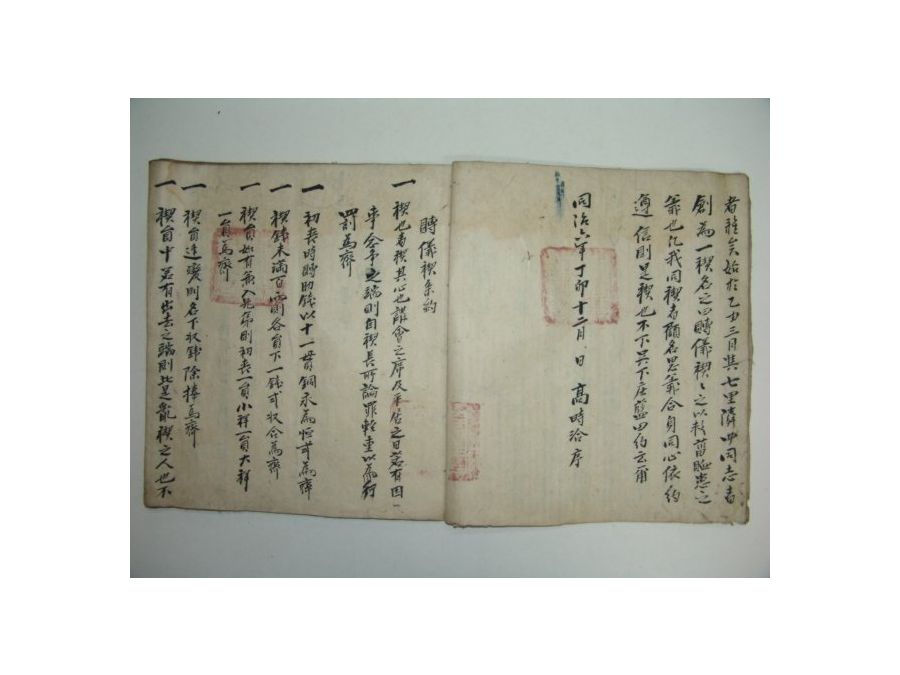 者稚矣始於乙丑三月與七里隣中同志者
創爲一稧名之曰賻儀稧稧之以救舊恤患之
義也凡我同稧者顧名思義合員同心依約
遵信則是稧也不下呂下庄藍田約云爾
同治六年丁卯十二月 日 高時洽序
賻儀稧条約
一 稧也者稧其心也講會之席及來佑之日若有因
事念爭之端則自稧長所論罪輕重以爲行
罰爲齊
一 初喪時賻助錢以十一母銅永爲恒式爲齊
一 稧錢未滿百兩各員下一錢式收合爲齊
一 稧員如有無 親 則初喪一員小祥一員大祥
一員爲齊
一 稧員遭變則名下收錢除捧爲齊
一 稧員中若有出去之端則此是亂稧之人也不